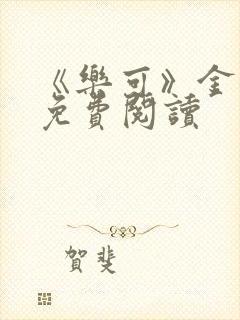 《樂可》全
免費閱讀
賀斐